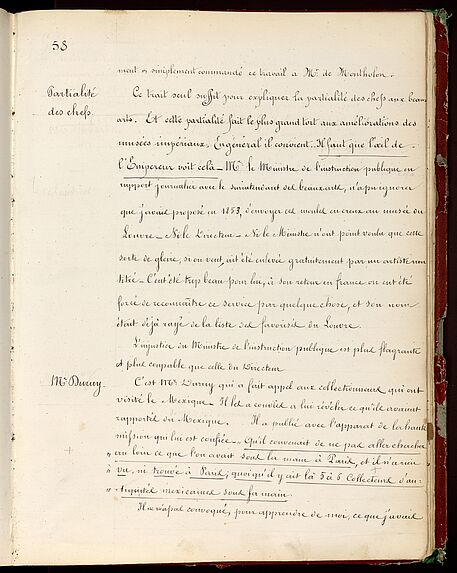 58
ment & simplement commandé ce travail à Mr. de Montholon.
Partialité
des chefs.
Ce trait seul suffit pour expliquer la partialité des chefs aux beaux
arts. Et cette partialité fait le plus grand tort aux améliorations des
musées impériaux. En général il convient. Il faut que l'œil de
l'Empereur voit celà - Mr. le Ministre de l'instruction publique en
rapport journalier avec le surintendant des beaux arts, n'a pu ignorer
que j'avais proposé en 1853, d'envoyer des moules en creux au musée du
Louvre - Ni le Directeur - Ni le Ministre n'ont point voulu que cette
sorte de gloire, si on veut, ait été enlevée gratuitement par un artiste non
titré - C'eut été trop beau pour lui, à son retour en france on eut été
forcé de reconnaître ce service par quelque chose, et son nom
était déjà rayé de la liste des favorisés du Louvre.
L'injustice du Ministre de l'instruction publique est plus flagrante
et plus coupable que celle du Directeur
Mr. Duruy.
C'est Mr. Duruy qui a fait appel aux collectionneurs qui ont
visité le Mexique - Il les a conviés a lui révéler ce qu'ils avaient
rapporté du Mexique. Il a publié avec l'apparat de la haute
mission qui lui est confiée - Qu'il convenait de ne pas aller chercher
au loin ce que l'on avait sous la main à Paris, et il n'a rien
vu, ni trouvé à Paris, quoiqu'il y ait là 5 à 6 Collections d'an-
tiquités mexicaines sous sa main.
Il ne m'a pas convoqué, pour apprendre de moi, ce que j'avais